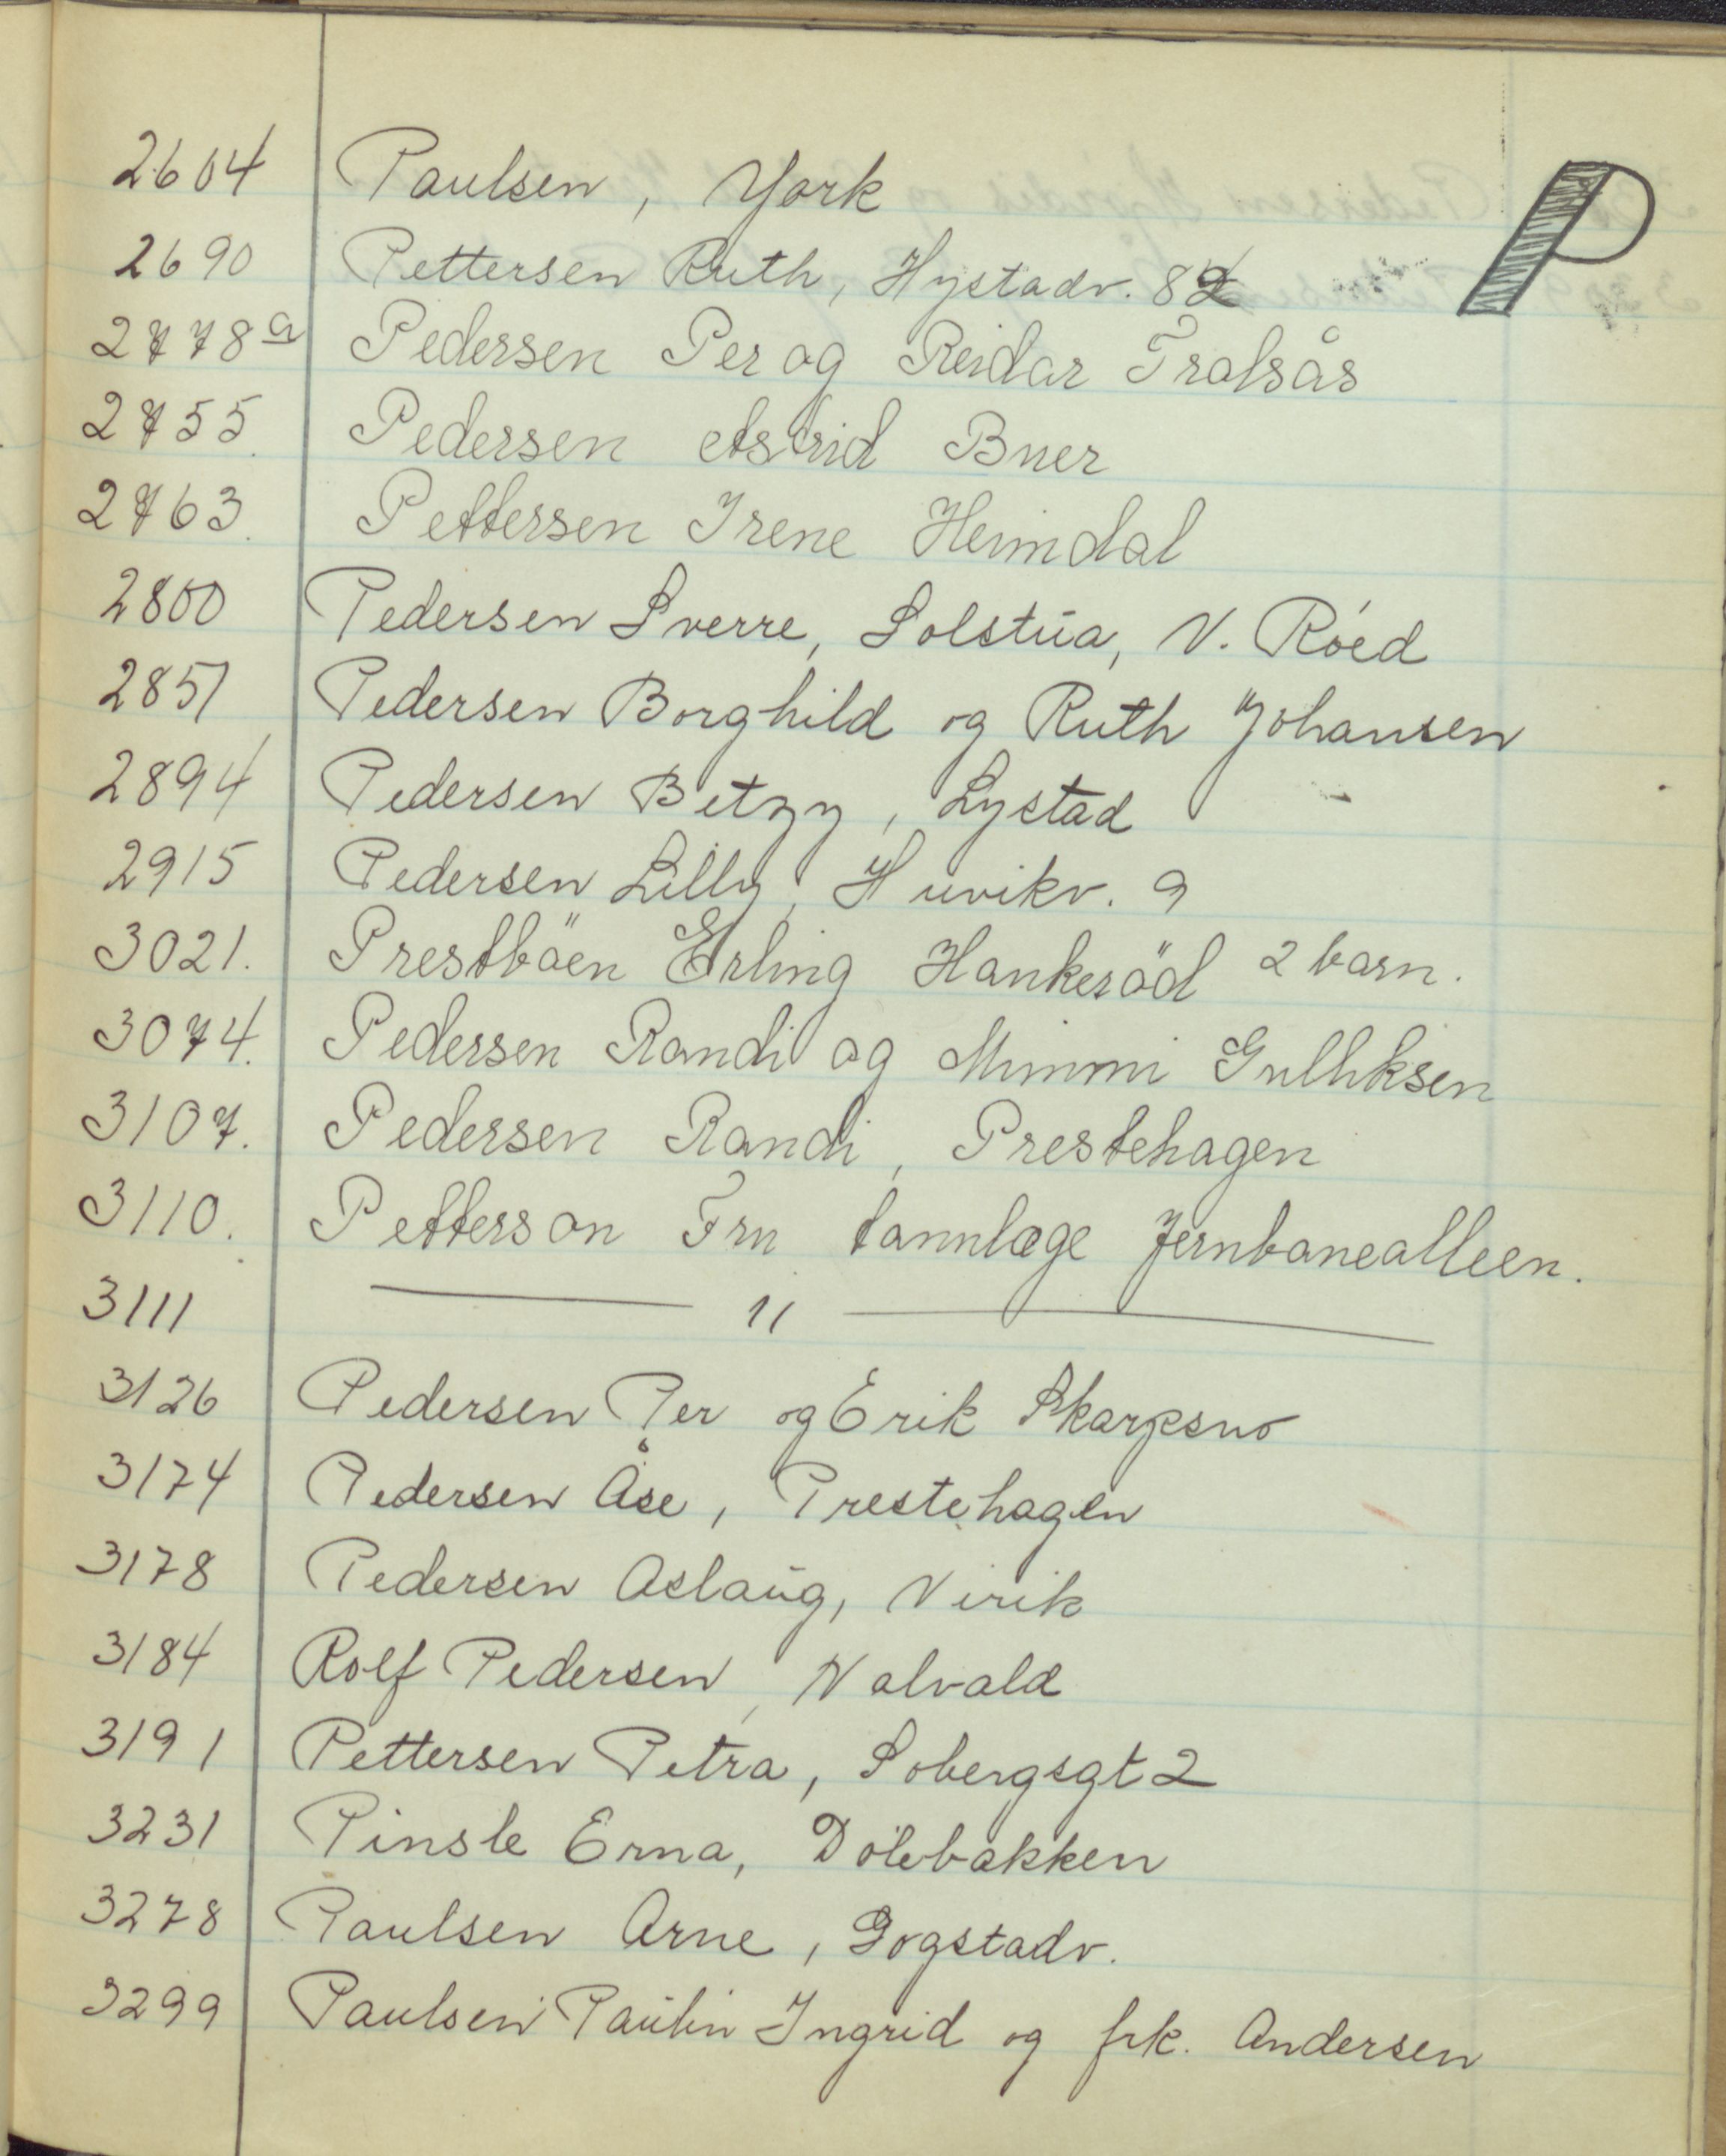 P
2604 Paulsen, York
2690 Pettersen Ruth, Hystadv. 82
2778a Pedersen Per og Reidar Tralsås
2755. Pedersen Astrid Buer
2763. Pettersen Irene Heimdal
2800 Pedersen Sverre, Solstua, V. Röed
2851 Pedersen Borghild og Ruth Johansen
2894 Pedersen Betzy, Lystad
2915 Pedersen Lilly, Huvikv. 9
3021. Prestböen Erling Hankeröd 2 barn.
3074. Pedersen Randi og Mimmi Gulliksen
3107. Pedersen Randi, Prestehagen
3110. Petterson Fru tannlæge Jernbanealleen.
3111 — 〃 —
3126 Pedersen Per og Erik Skarpsno
3174 Pedersen Åse, Prestehagen
3178 Pedersen Aslaug, Virik
3184 Rolf Pedersen, Nalvald
3191 Pettersen Petra, Sobergsgt 2
3231 Pinsle Erna, Dölebakken
3278 Paulsen Arne, Gogstadv.
3299 Paulsen Paulin Ingrid og frk. Andersen